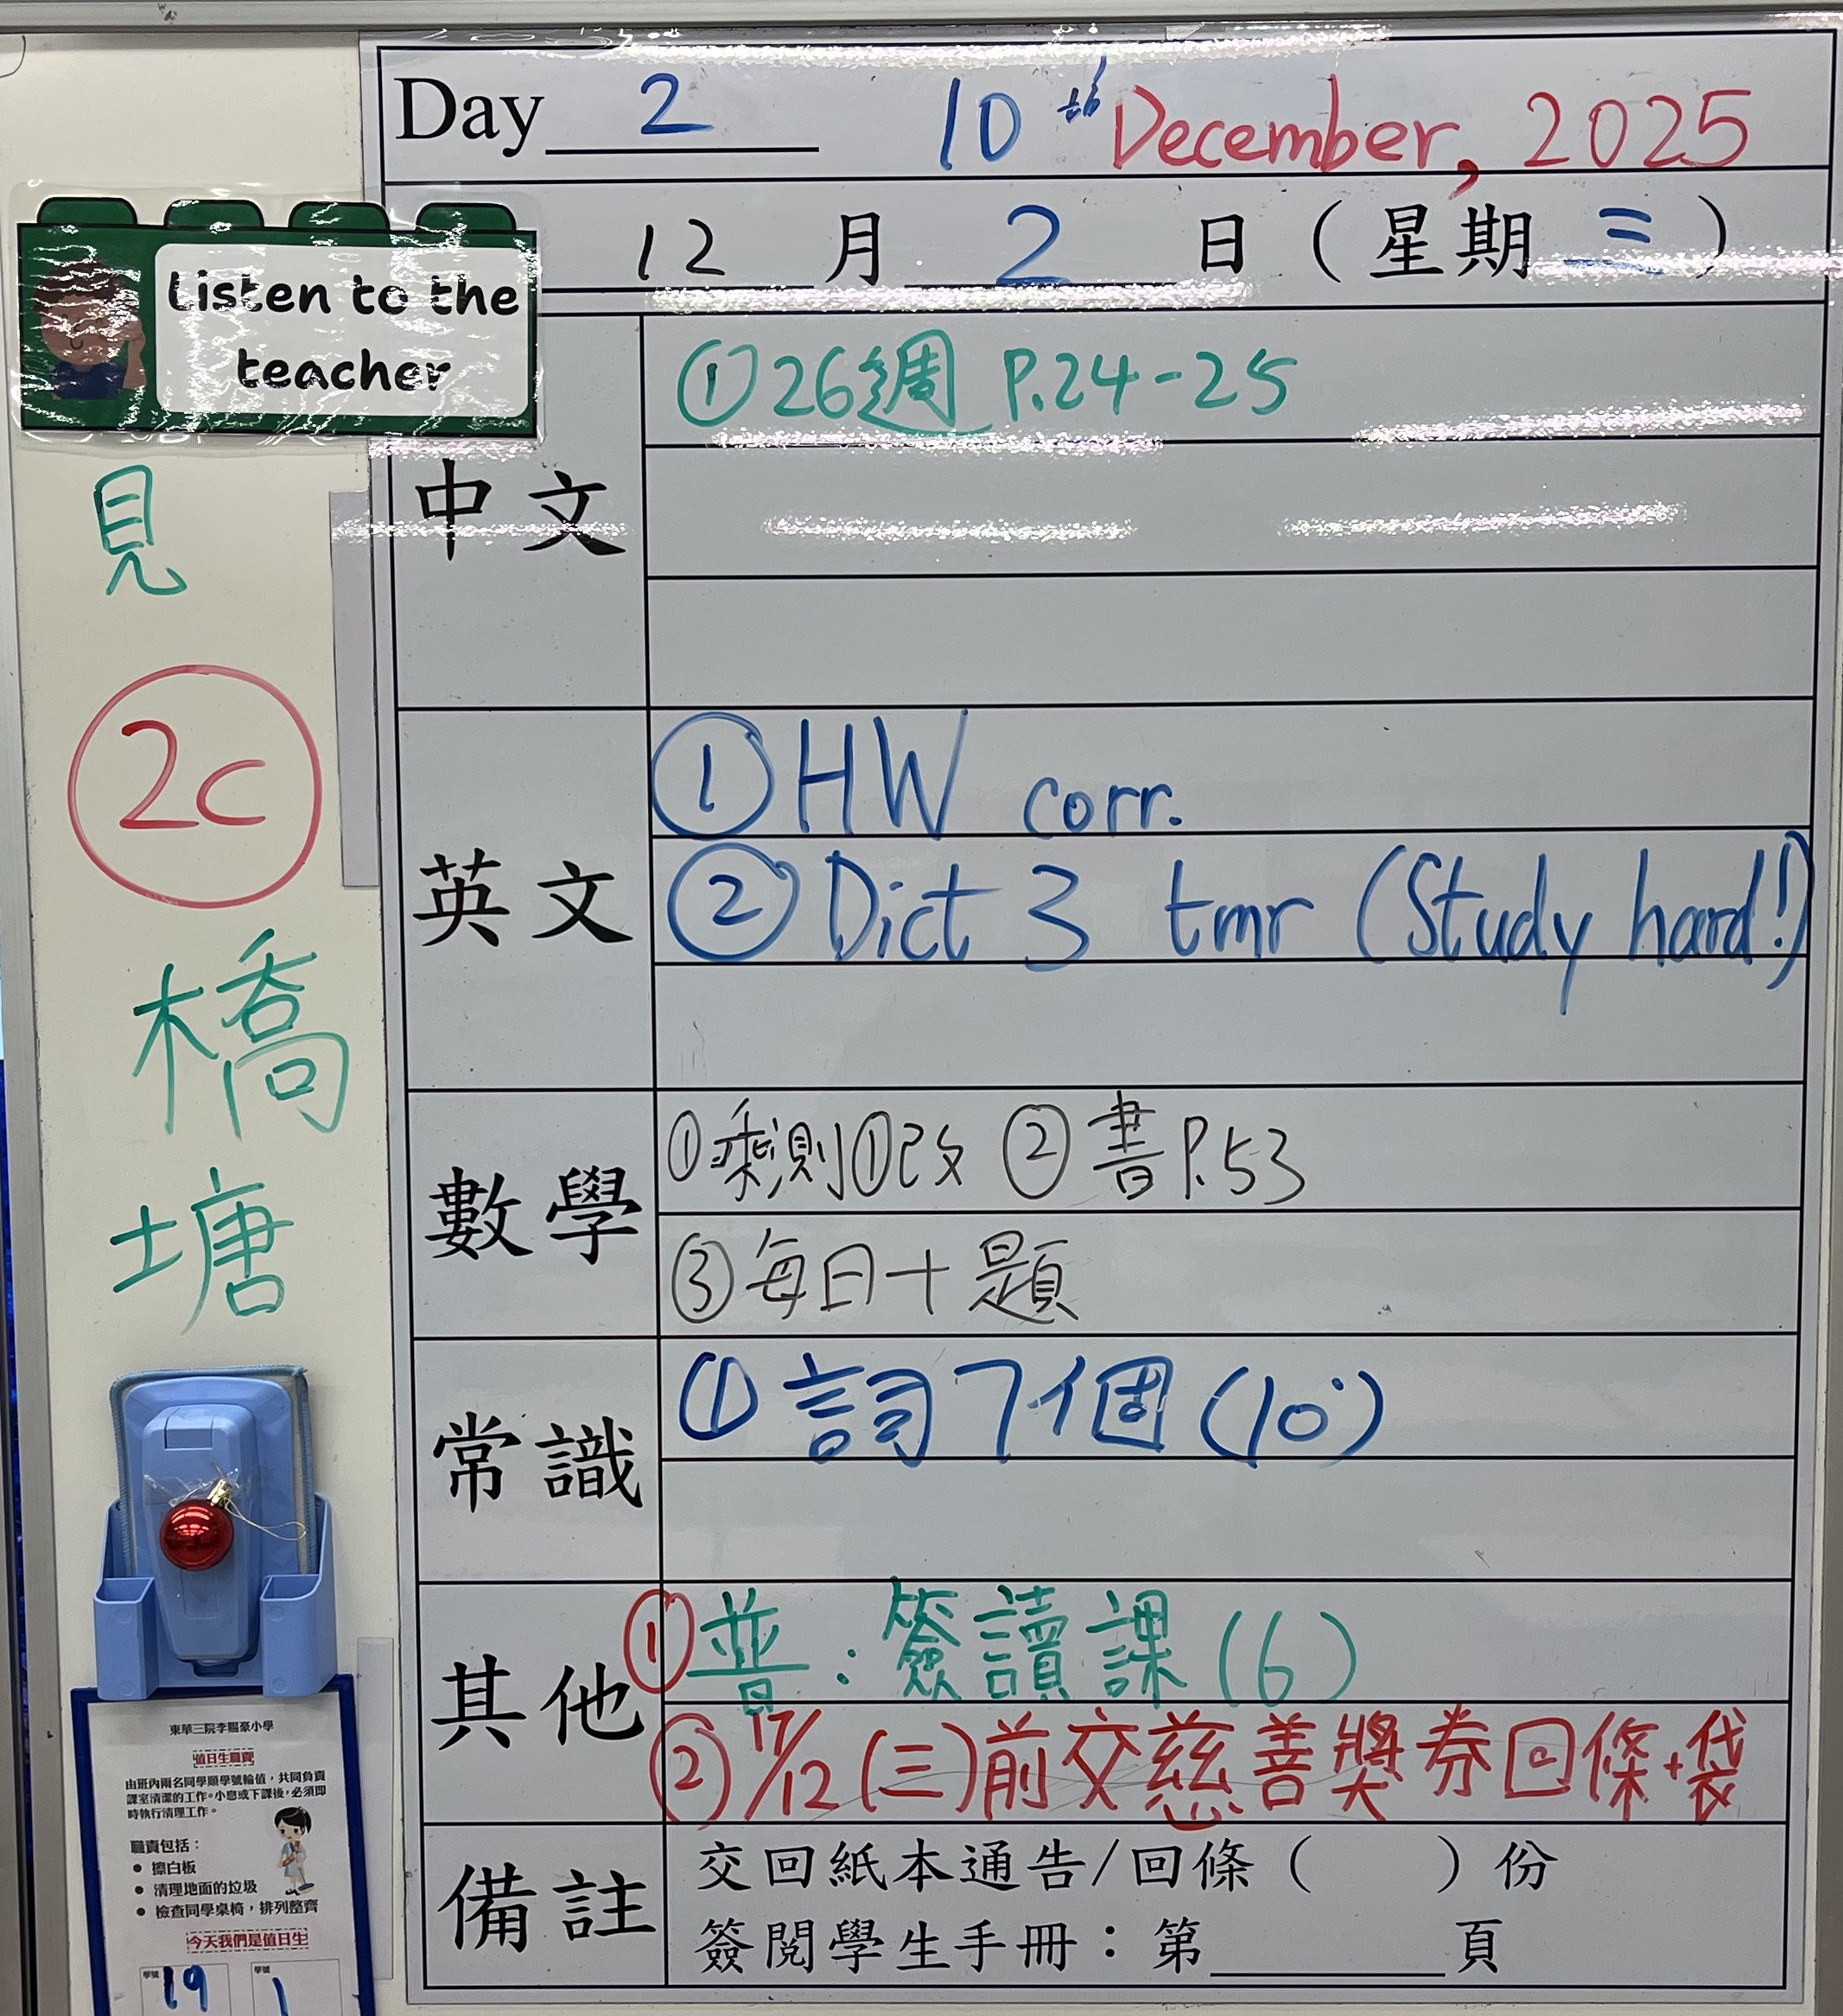 Day 2 10th December, 2025
12 月 2 日 ( 星期 二 )
Listen to the
teacher
中文
①26週 P.24-25
見
2c
橋
塘
英文
① HW corr.
② Dict 3 tmr (Study hard!)
數學
①乘測①改 ②書P.53
③每日十題
常識
① 詞7個 (10)
其他
①普:簽讀課(6)
②17/12(三)前交慈善獎券回條+袋
備註
交回紙本通告/回條 ( ) 份
簽閱學生手冊:第 頁
東華三院李賜豪小學
值日生職責
由班內兩名同學順學號輪值,共同負責
課室清潔的工作。小息或下課後,必須即
時執行清理工作。
職責包括:
● 擦白板
● 清理地面的垃圾
● 檢查同學桌椅,排列整齊
今天我們是值日生
學號 19 學號 1